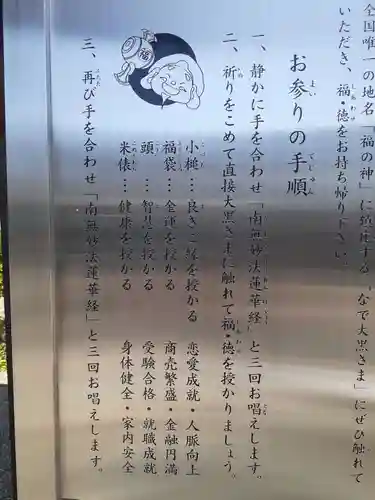 全国唯一の地名「福の神」に鎮座する、"なで大黒さま"にぜひ触れて
いただき、福・徳をお持ち帰り下さい。
お参りの手順
一、静かに手を合わせ「南無妙法蓮華経」と三回お唱えします。
二、祈りをこめて直接大黒さまに触れて福・徳を授かりましょう。
福
小槌…良きご縁を授かる 恋愛成就・人脈向上
福袋…金運を授かる 商売繁盛・金融円満
頭…智慧を授かる 受験合格・就職成就
米俵…健康を授かる 身体健全・家内安全
三、再び手を合わせ「南無妙法蓮華経」と三回お唱えします。